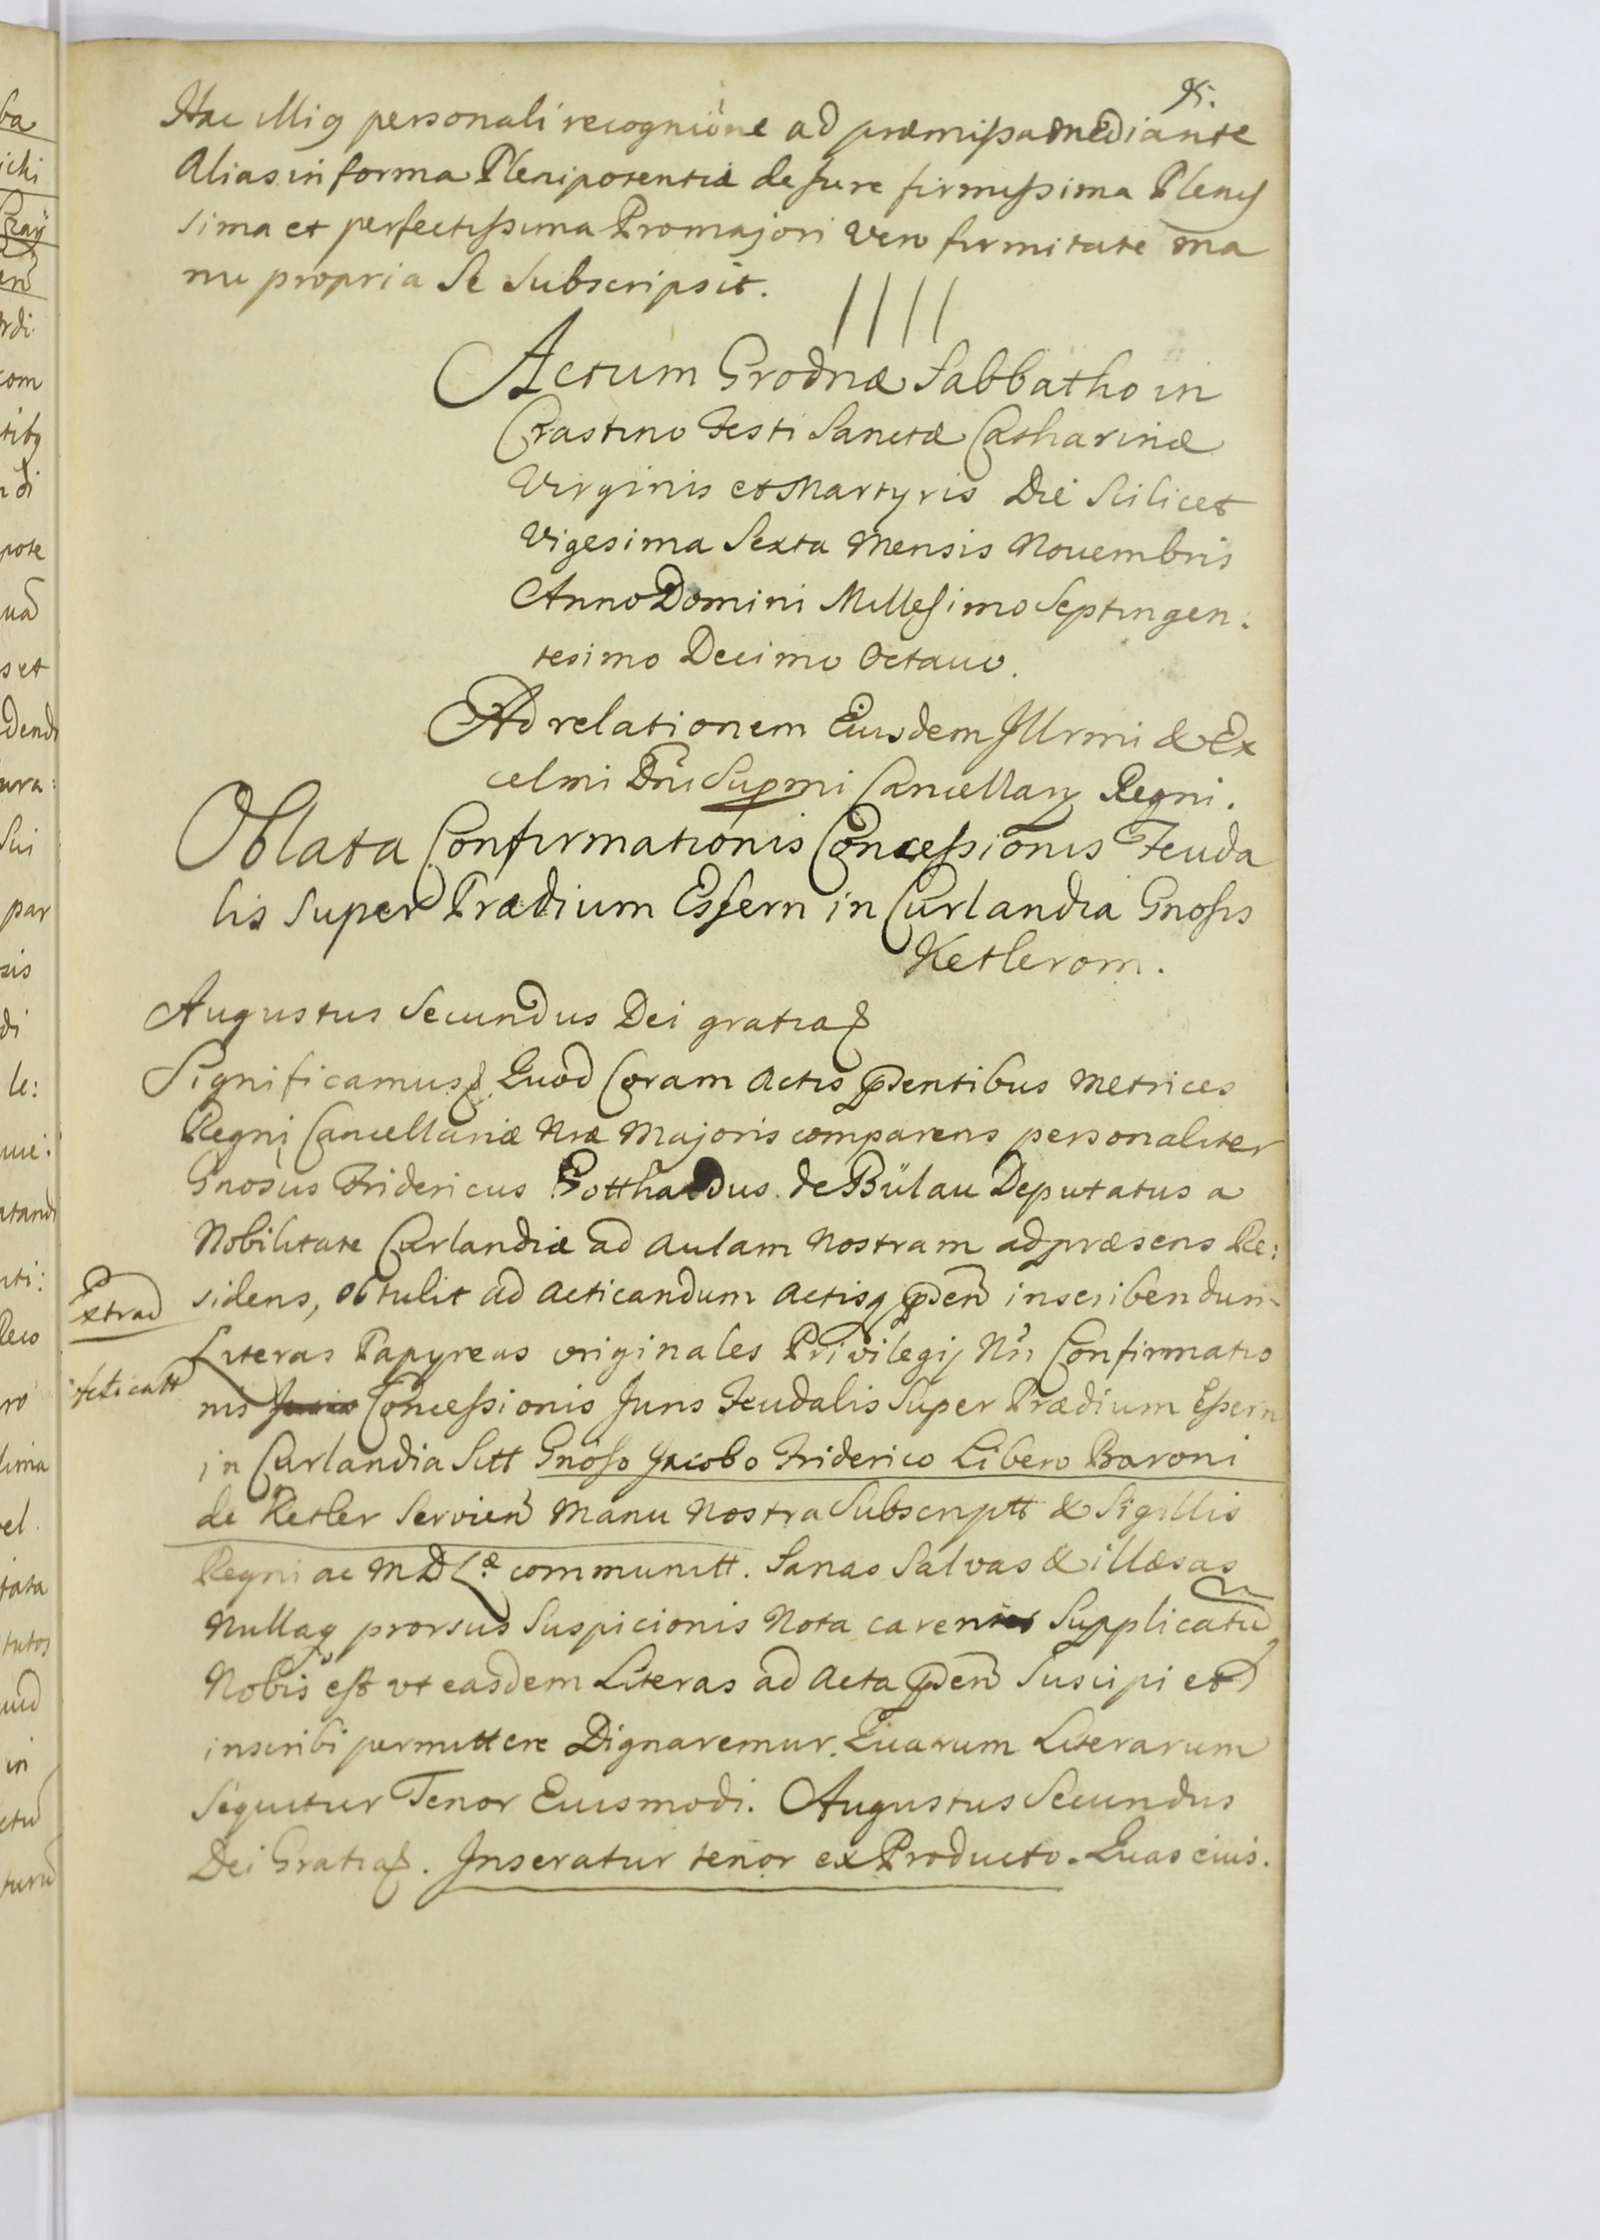 Hac illiq personali recognitione ad præmissa mediante
Alias in forma Plenipotentiæ de Jure firmissima Plenis
sima et perfectissima Pro majori vero firmitate ma
nu propria Se Subscripsit.
Actum Grodnæ Sabbatho in
Crastino Festi Sanctæ Catharinæ
Virginis et Martyris Die Scilicet
Vigesima Sexta Mensis Novembris
Anno Domini Millesimo Septingen:
tesimo Decimo Octavo.
Ad relationem Eiusdem Illrmi & Ex
celmi Dni Supmi Cancellarij Regni.
Oblata Confirmationis Concessionis Feuda
lis Super Prædium Essern in Curlandia Gnosis
Ketlerom.
Augustus Secundus Dei gratia
Significamus Quod Coram Actis psentibus Metrices
Regni Cancellariæ Nræ Majoris comparens personaliter
Gnosus Fridericus Gotthardus de Bülau Deputatus a
Nobilitate Curlandiæ ad Aulam Nostram ad præsens Re:
Extrad
sidens, Obtulit ad Acticandum Actisq psen inscribendum
Literas Papyreas originales Privilegij Nri Confirmatio
nis Concessionis Juris Feudalis Super Prædium Essern
in Curlandia Sitt Gnoso Jacobo Friderico Libero Baroni
de Ketler Servien Manu Nostra Subscriptt & Sigillis
Regni ac M D L.æ communitt. Sanas Salvas & illæsas
Nullaq prorsus Suspicionis Nota carentes Supplicatu
Nobis est vt easdem Literas ad Acta psen Suscipi et
inscribi permittere Dignaremur. Quarum Literarum
Sequitur Tenor Eiusmodi. Augustus Secundus
Dei Gratia. Inseratur tenor ex Producto. Quas eius.